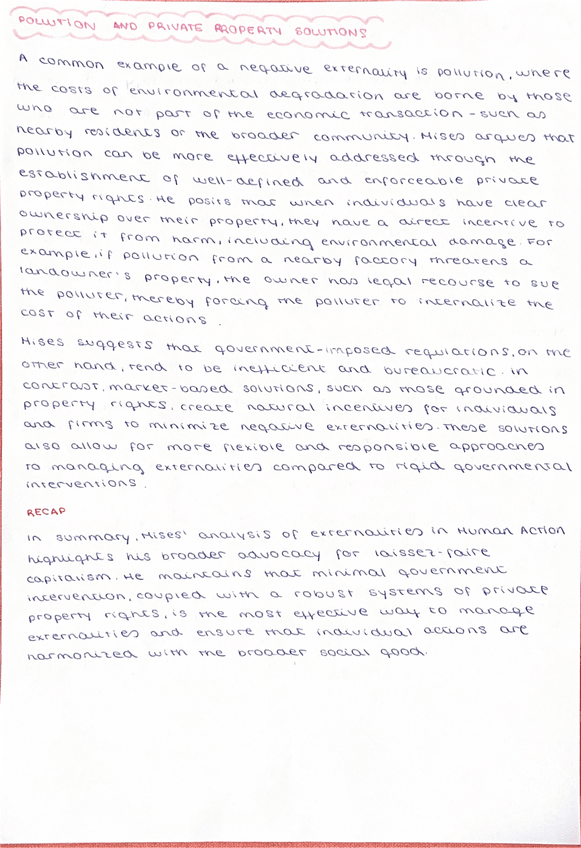 POLLUTION AND PRIVATE PROPERTY SOLUTIONS
A common example of a negative externality is pollution, where
the costs of environmental degradation are borne by those
who are not part of the economic transaction - such as
nearby residents or the broader community. Mises argues that
pollution can be more effectively addressed through the
establishment of well-defined and enforceable private
property rights. He posits that when individuals have clear
ownership over their property, they have a direct incentive to
protect it from harm, including environmental damage. For
example, if pollution from a nearby factory threatens a
landowner's property, the owner has legal recourse to sue
the polluter, thereby forcing the polluter to internalize the
cost of their actions.
Mises suggests that government-imposed regulations, on the
other hand, tend to be inefficient and bureaucratic. In
contrast, market-based solutions, such as those grounded in
property rights, create natural incentives for individuals
and firms to minimize negative externalities. These solutions
also allow for more flexible and responsible approaches
to managing externalities compared to rigid governmental
interventions.
RECAP
In summary, Mises' analysis of externalities in Human Action
highlights his broader advocacy for laissez-faire
capitalism. He maintains that minimal government
intervention, coupled with a robust systems of private
property rights, is the most effective way to manage
externalities and ensure that individual actions are
harmonized with the broader social good.